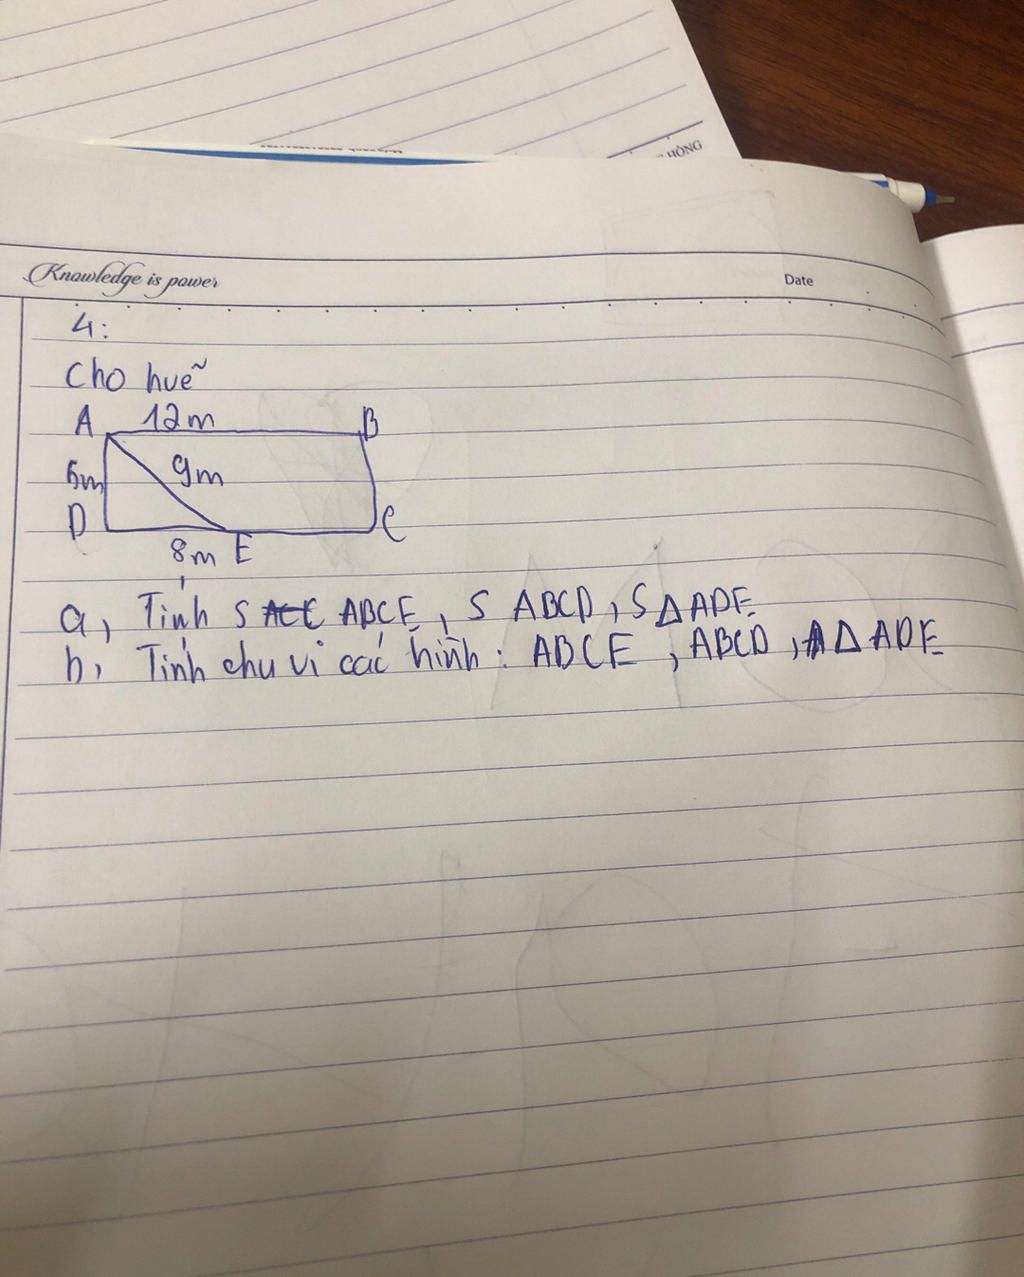 HÔNG
Knowledge is power
Date
4:
Cho huẽ
A 12m B
6m 9m
D C
8m E
a, Tính S ABCE, S ABCD, S Δ ADE
b, Tính chu vi các hình: ABCE, ABCD, Δ ADE